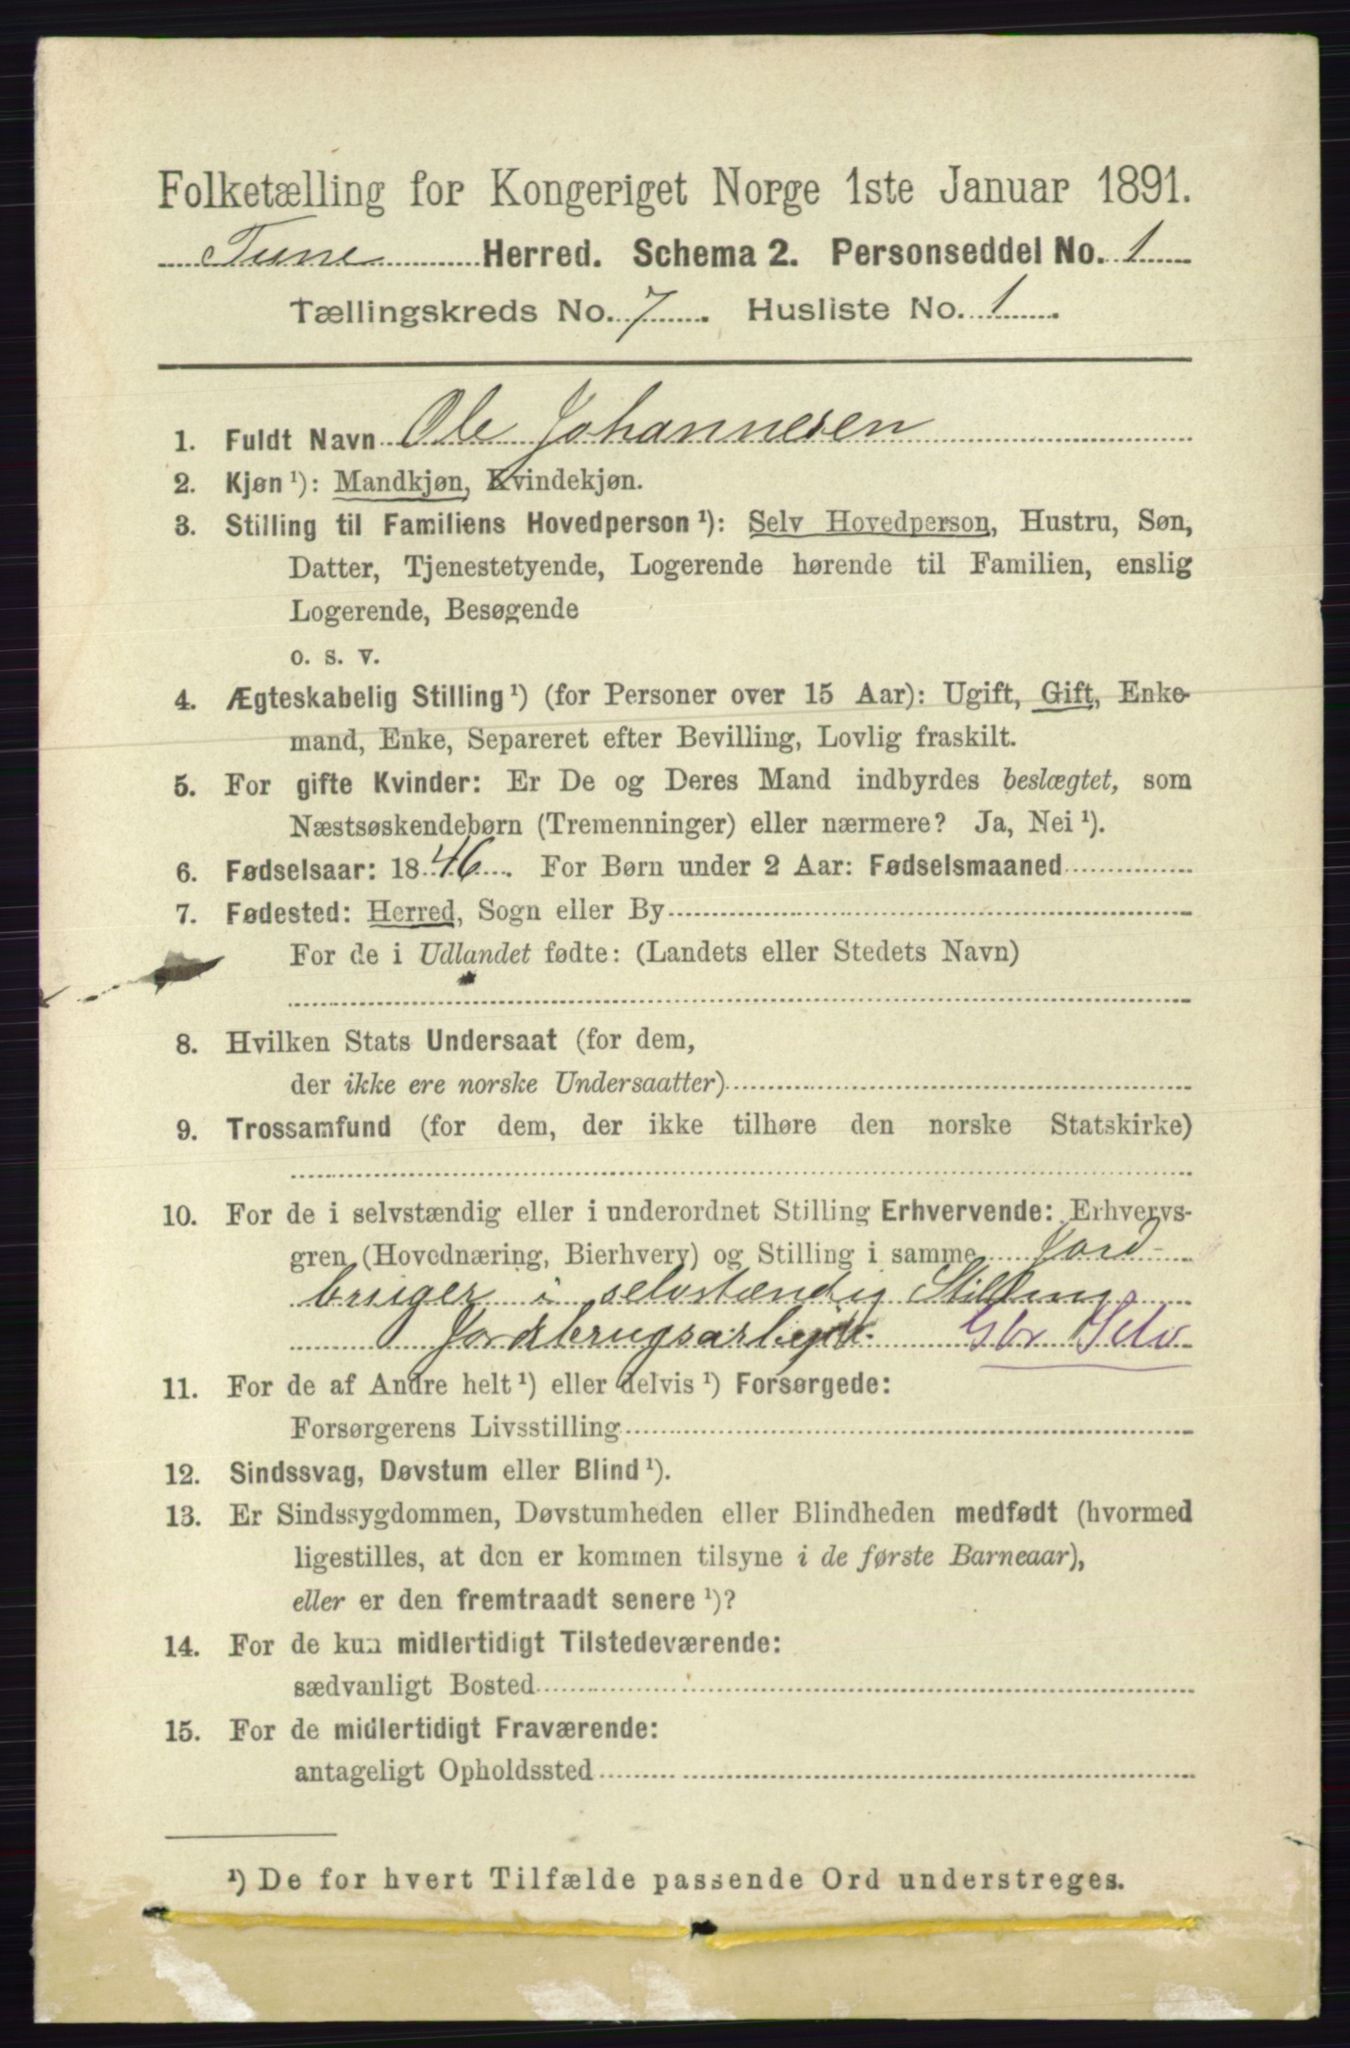 Folketælling for Kongeriget Norge 1ste Januar 1891.
Tune Herred. Schema 2. Personseddel No. 1
Tællingskreds No. 7. Husliste No. 1.
1. Fuldt Navn Ole Johannesen
2. Kjøn ¹): Mandkjøn, Kvindekjøn.
3. Stilling til Familiens Hovedperson ¹): Selv Hovedperson, Hustru, Søn,
Datter, Tjenestetyende, Logerende hørende til Familien, enslig
Logerende, Besøgende
o. s. v.
4. Ægteskabelig Stilling ¹) (for Personer over 15 Aar): Ugift, Gift, Enke-
mand, Enke, Separeret efter Bevilling, Lovlig fraskilt.
5. For gifte Kvinder: Er De og Deres Mand indbyrdes beslægtet, som
Næstsøskendebørn (Tremenninger) eller nærmere? Ja, Nei ¹).
6. Fødselsaar: 1846. For Børn under 2 Aar: Fødselsmaaned
7. Fødested: Herred, Sogn eller By
For de i Udlandet fødte: (Landets eller Stedets Navn)
8. Hvilken Stats Undersaat (for dem,
der ikke ere norske Undersaatter)
9. Trossamfund (for dem, der ikke tilhøre den norske Statskirke)
10. For de i selvstændig eller i underordnet Stilling Erhvervende: Erhvervs-
gren (Hovednæring, Bierhverv) og Stilling i samme Jord-
bruger i selvstændig Stilling
Jordbrugsarbejde. Gbr Selv
11. For de af Andre helt ¹) eller delvis ¹) Forsørgede:
Forsørgerens Livsstilling
12. Sindssvag, Døvstum eller Blind ¹).
13. Er Sindssygdommen, Døvstumheden eller Blindheden medfødt (hvormed
ligestilles, at den er kommen tilsyne i de første Barneaar),
eller er den fremtraadt senere ¹)?
14. For de kun midlertidigt Tilstedeværende:
sædvanligt Bosted
15. For de midlertidigt Fraværende:
antageligt Opholdssted
¹) De for hvert Tilfælde passende Ord understreges.